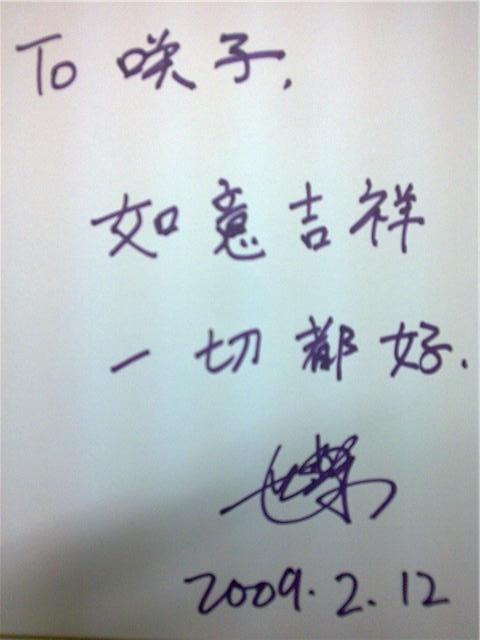 To 咲子,
如意吉祥
一切都好.
2009.2.12